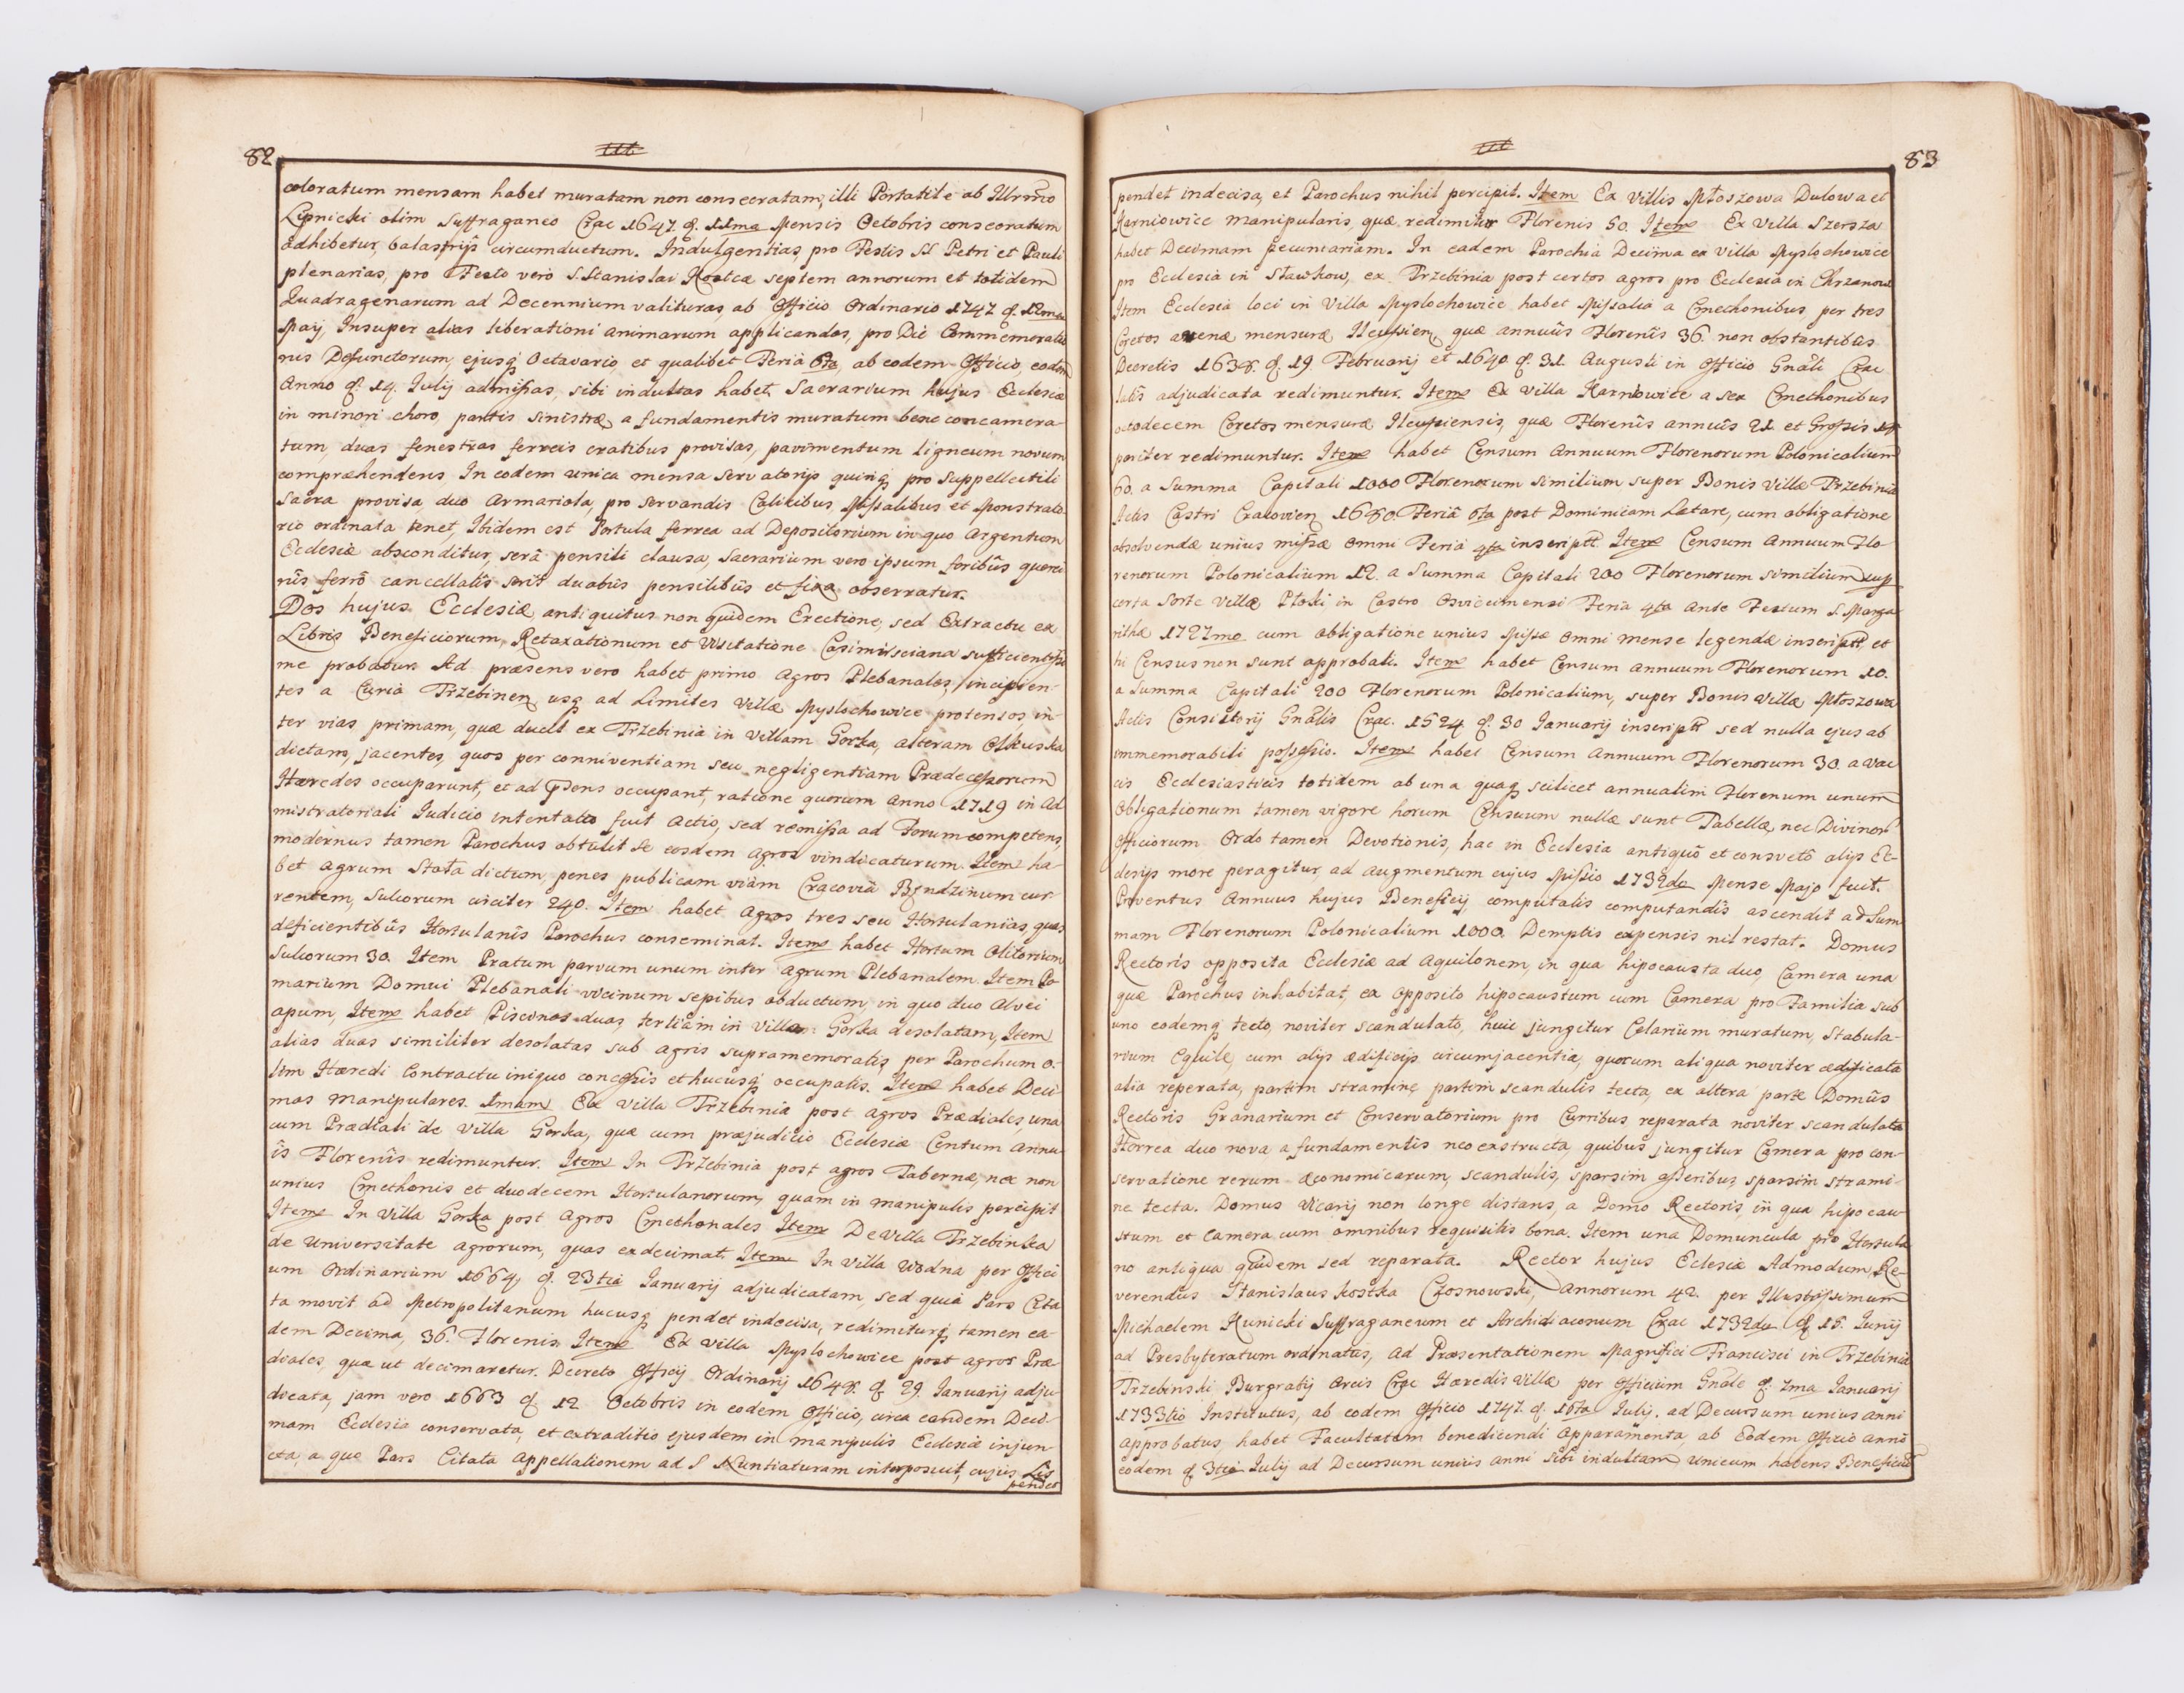 82
coloratum mensam habet muratam non consecratam, illi Portatile ab Illrmo
Lipnicki olim Suffraganeo Crac 1647. d. 11ma Mensis Octobris consecratum
adhibetur, balastrijs circumductum. Indulgentias, pro Festis SS Petri et Pauli
plenarias, pro Festo vero S. Stanislai Kostcæ septem annorum et totidem
Quadragenarum ad Decennium valituras, ab Officio Ordinario 1747 d. 12ma
Maij, Insuper alias liberationi animarum applicandas, pro Die Commemoratio
nis Defunctorum, ejusq Octavario, et qualibet Feria 6ta, ab eodem Officio, eodem
Anno d. 14. Iulij admissas, sibi indultas habet. Sacrarium hujus Ecclesiæ
in minori choro, partis sinistræ, a fundamentis muratum bene concamera-
tum, duas fenestras ferreis cratibus provisas, pavimentum ligneum novum
compræhendens. In eodem unica mensa servatorijs quinq pro Suppellectili
Sacra provisa, duo Armariola, pro servandis Calicibus, Missalibus et Monstrato
rio ordinata tenet, Ibidem est Portula ferrea ad Depositorium in quo Argentum
Ecclesiæ absconditur, serâ pensili clausa, Sacrarium vero ipsum foribûs querci
nîs ferrô cancellatîs serîs duabûs pensilibûs et fixa obserratur.
Dos hujus Ecclesiæ antiquitus non quidem Erectione, sed Extractu ex
Libris Beneficiorum, Retaxationum et Visitatione Casimirsciana sufficientissi
me probatur. Ad præsens vero habet primo Agros Plebanales, incipien-
tes a Curia Trzebinen, usq ad Limites Villæ Myslochowice protensos in-
ter vias primam, quæ ducit ex Trzebinia in Villam Gorka, alteram Olkuska
dictam, jacentes, quos per conniventiam seu negligentiam Prædecessorum
Hæredes occuparunt, et ad Psens occupant, ratione quorum Anno 1719 in Ad
mistratoriali Iudicio intentata fuit Actio, sed remissa ad Forum competens,
modernus tamen Parochus obtulit se eosdem Agros vindicaturum. Item ha-
bet Agrum Stata dictum, penes publicam viam Cracoviâ Bendzinum cur-
rentem, Sulcorum circiter 240. Item habet Agros tres seu Hortulanias, quas
deficientibûs Hortulanîs Parochus conseminat. Item habet Hortum Olitorium
Sulcorum 30. Item Pratum parvum unum inter Agrum Plebanalem. Item Po-
marium Domui Plebanali vicinum sepibus obductum, in quo duo Alvei
apum, Item habet Piscinas duas, tertiam in Villa Gorka desolatam, Item
alias duas similiter desolatas sub Agris supramemoratis, per Parochum o-
lim Hæredi Contractu iniquo concessis et hucusq occupatis. Item habet Deci
mas Manipulares. 1mam Ex Villa Trzebinia post Agros Prædiales, una
cum Prædiali de Villa Gorka, quæ cum præjudicio Ecclesiæ Centum annu
is Florenis redimuntur. Item In Trzebinia post agros Tabernæ, nec non
unius Cmethonis et duodecem Hortulanorum, quam in manipulis percipit
Item In Villa Gorka post Agros Cmethonales Item De Villa Trzebinka
de Universitate Agrorum, quas exdecimat. Item In Villa Wodna per Offici
um Ordinarium 1664, d. 23tia Ianuarij adjudicatam, sed quia Pars Cita
ta movit ad Metropolitanum hucusq pendet indecisa, redimiturq tamen ea-
dem Decima, 36. Florenis. Item Ex Villa Myslochowice post agros Præ-
diales, quæ ut decimaretur. Decreto Officij Ordinarij 1648. d 29. Ianuarij adju-
dicata, jam vero 1663 d. 12 Octobris in eodem Officio, circa eandem Deci-
mam Ecclesia conservata, et extraditio ejusdem in manipulis Ecclesiæ injun-
cta, a quo Pars Citata Appellationem ad S Nuntiaturam interposuit, cujus Lis
pendet
83
pendet indecisa, et Parochus nihil percipit. Item Ex Villis Młoszowa Dulowa et
Karniowice Manipularis, quæ redimitur Florenis 50. Item Ex Villa Szersza
habet Decimam pecuniariam. In eadem Parochia Decima ex Villa Myslochowice
pro Ecclesia in Sławkow, ex Trzebinia post certos agros pro Ecclesia in Chrzanow
Item Ecclesia loci in Villa Myslochowice habet Missalia a Cmethonibus per tres
Coretos avenæ mensuræ Ilcussien, quæ annuîs Florenîs 36. non obstantibûs
Decretis 1638. d. 19 Februarij et 1640. d. 31. Augusti in Officio Gnâli Crac
latis adjudicata redimuntur. Item Ex Villa Karniowice a sex Cmethonibus
octodecem Coretos mensuræ Ilcussiensis, quæ Florenîs annuîs 21 et Grossis
pariter redimuntur. Item habet Censum Annuum Florenorum Polonicalium
60. a Summa Capitali 1000 Florenorum similium super Bonis Villæ Trzebinia
Actis Castri Cracovien, 1680. Feriâ 6ta post Dominicam Lætare, cum obligatione
absolvendæ unius missæ omni Feria 4ta inscriptt. Item Censum Annuum Flo-
renorum Polonicalium 12. a Summa Capitali 200 Florenorum similium supp
certa Sorte Villæ Płoki in Castro Osviecimensi Feria 4ta Ante Festum S. Marga
rithæ 1727mo cum obligatione unius Missæ Omni mense legendæ inscriptt, et
hi Census non sunt approbati. Item habet Censum Annuum Florenorum 10.
a Summa Capitali 200 Florenorum Polonicalium, super Bonis Villæ Młoszowa
Actis Consistorij Gnâlis Crac. 1524 d. 30 Ianuarij inscriptt sed nulla ejus ab
immemorabili possessio. Item habet Censum Annuum Florenorum 30. a Vac
cis Ecclesiasticis totidem ab una quaq, scilicet annualim Florenum unum
Obligationum tamen vigore horum Censuum nullæ sunt Tabellæ, nec Divinor
Officiorum Ordo tamen Devotionis, hac in Ecclesia antiquô et consvetô alijs Ec-
clesijs more peragitur, ad augmentum cujus Missio 1732do Mense Majo fuit.
Proventus Annuus hujus Beneficij computatis computandîs ascendit ad Sum
mam Florenorum Polonicalium 1000. Demptis expensis nil restat. Domus
Rectoris opposita Ecclesiæ ad Aquilonem, in qua hipocausta duo, Camera una
quæ Parochus inhabitat, ex opposito hipocaustum cum Camera pro Familia sub
uno eodemq tecto, noviter scandulato, huic jungitur Celarium muratum, Stabula-
rium Equile, cum alijs ædificijs circumjacentia, quorum aliqua noviter ædificata
alia reperata, partim stramine, partim scandulis tecta, ex altera parte Domûs
Rectoris Granarium et Conservatorium pro Curribus reparata noviter scandulata
Horrea duo nova a fundamentis neoexstructa, quibus jungitur Camera pro con-
servatione rerum œconomicarum, scandulis, sparsim asseribus, sparsim strami-
ne tecta. Domus Vicarij non longe distans, a Domo Rectoris, in qua hipocau-
stum et Camera cum omnibus requisitis bona. Item una Domuncula pro Hortula
no antiqua quidem sed reparata. Rector hujus Eclesiæ Admodum Re-
verendus Stanislaus Kostka Czosnowski, Annorum 42. per Illustrissimum
Michaelem Kunicki Suffraganeum et Archidiaconum Crac 1732do d. 15. Iunij
ad Presbyteratum ordinatus, ad Præsentationem Magnifici Francisci in Trzebinia
Trzebinski Burgrabij Arcis Crac Hæredis Villæ per Officium Gnâle d. 7ma Ianuarij
1733tio Institutus, ab eodem Officio 1747. d. 16ta Iulij. ad Decursum unius anni
Approbatus, habet Facultatem benedicendi Apparamenta, ab Eodem Officio anno
eodem d 3tia Iulij ad Decursum unius anni sibi indultam unicum habens Beneficiu